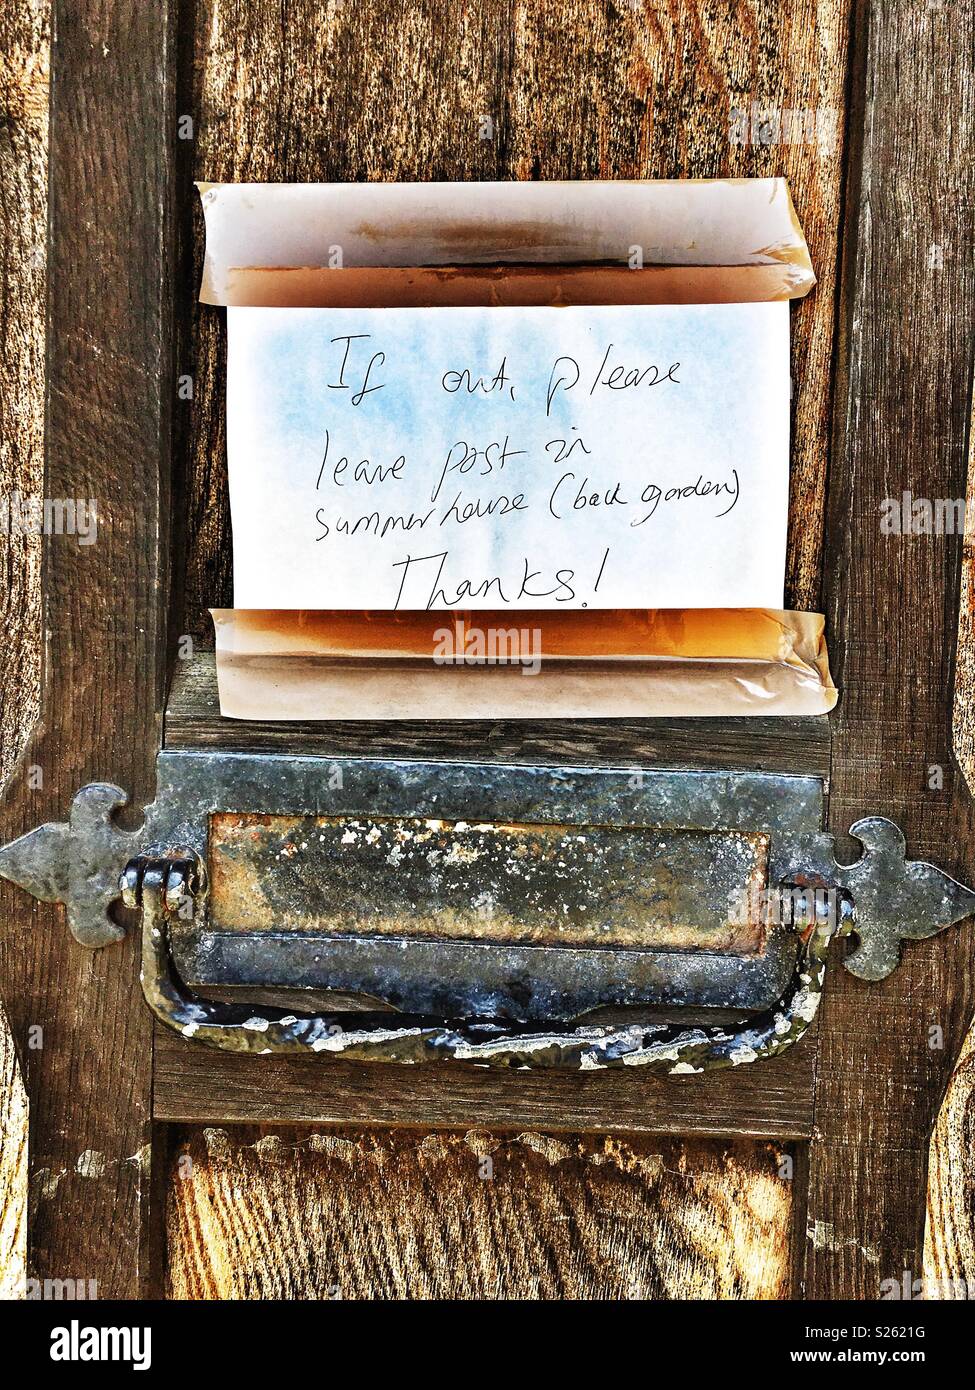 If out, please
leave post in
summerhouse (back garden)
Thanks!
alamy
Image ID: S2621G
www.alamy.com